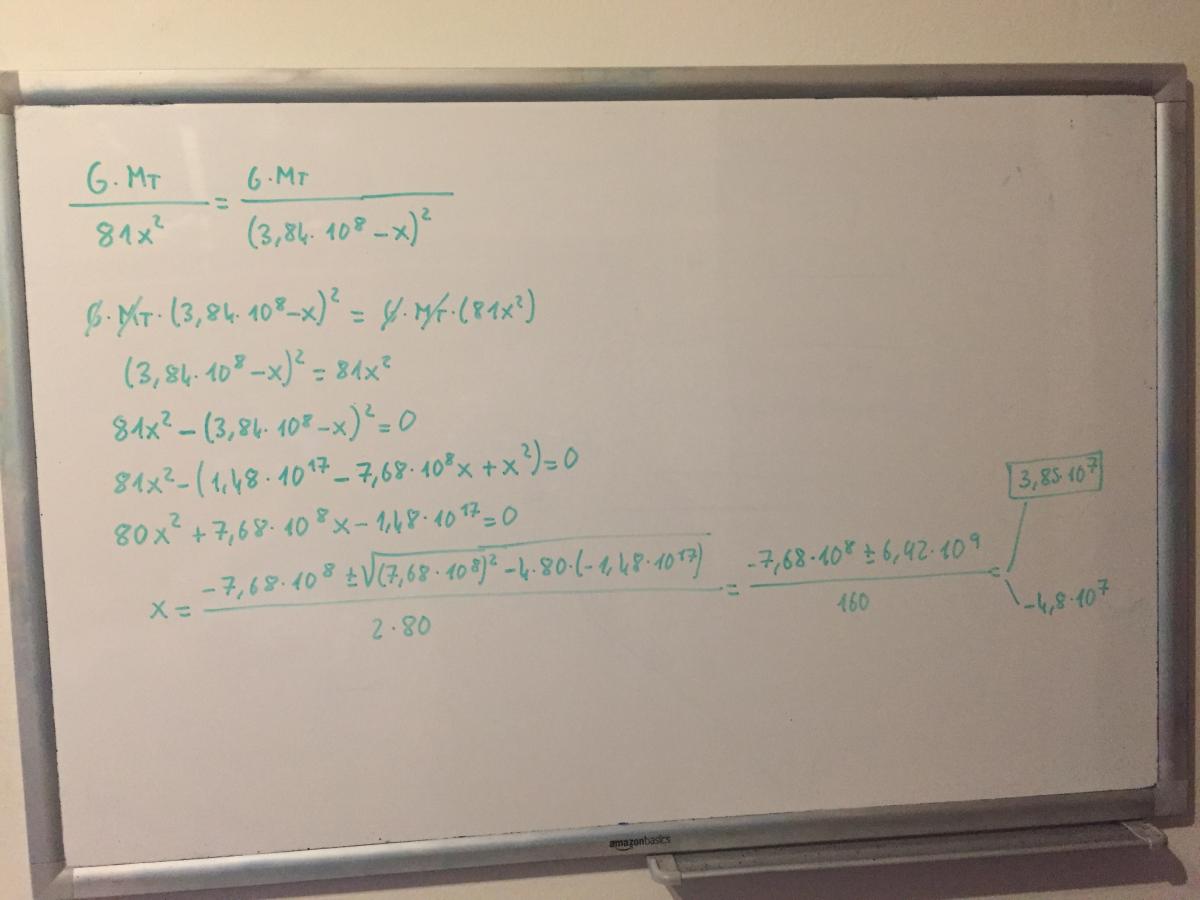 G·M_T / 81x² = G·M_T / (3,84·10⁸ − x)²
G·M_T·(3,84·10⁸−x)² = G·M_T·(81x²)
(3,84·10⁸−x)² = 81x²
81x² − (3,84·10⁸−x)² = 0
81x² − (1,48·10¹⁷ − 7,68·10⁸x + x²) = 0
80x² + 7,68·10⁸x − 1,48·10¹⁷ = 0
x = (−7,68·10⁸ ± √((7,68·10⁸)² − 4·80·(−1,48·10¹⁷))) / (2·80) = (−7,68·10⁸ ± 6,92·10⁹) / 160 =
3,85·10⁷
−4,8·10⁷
amazonbasics